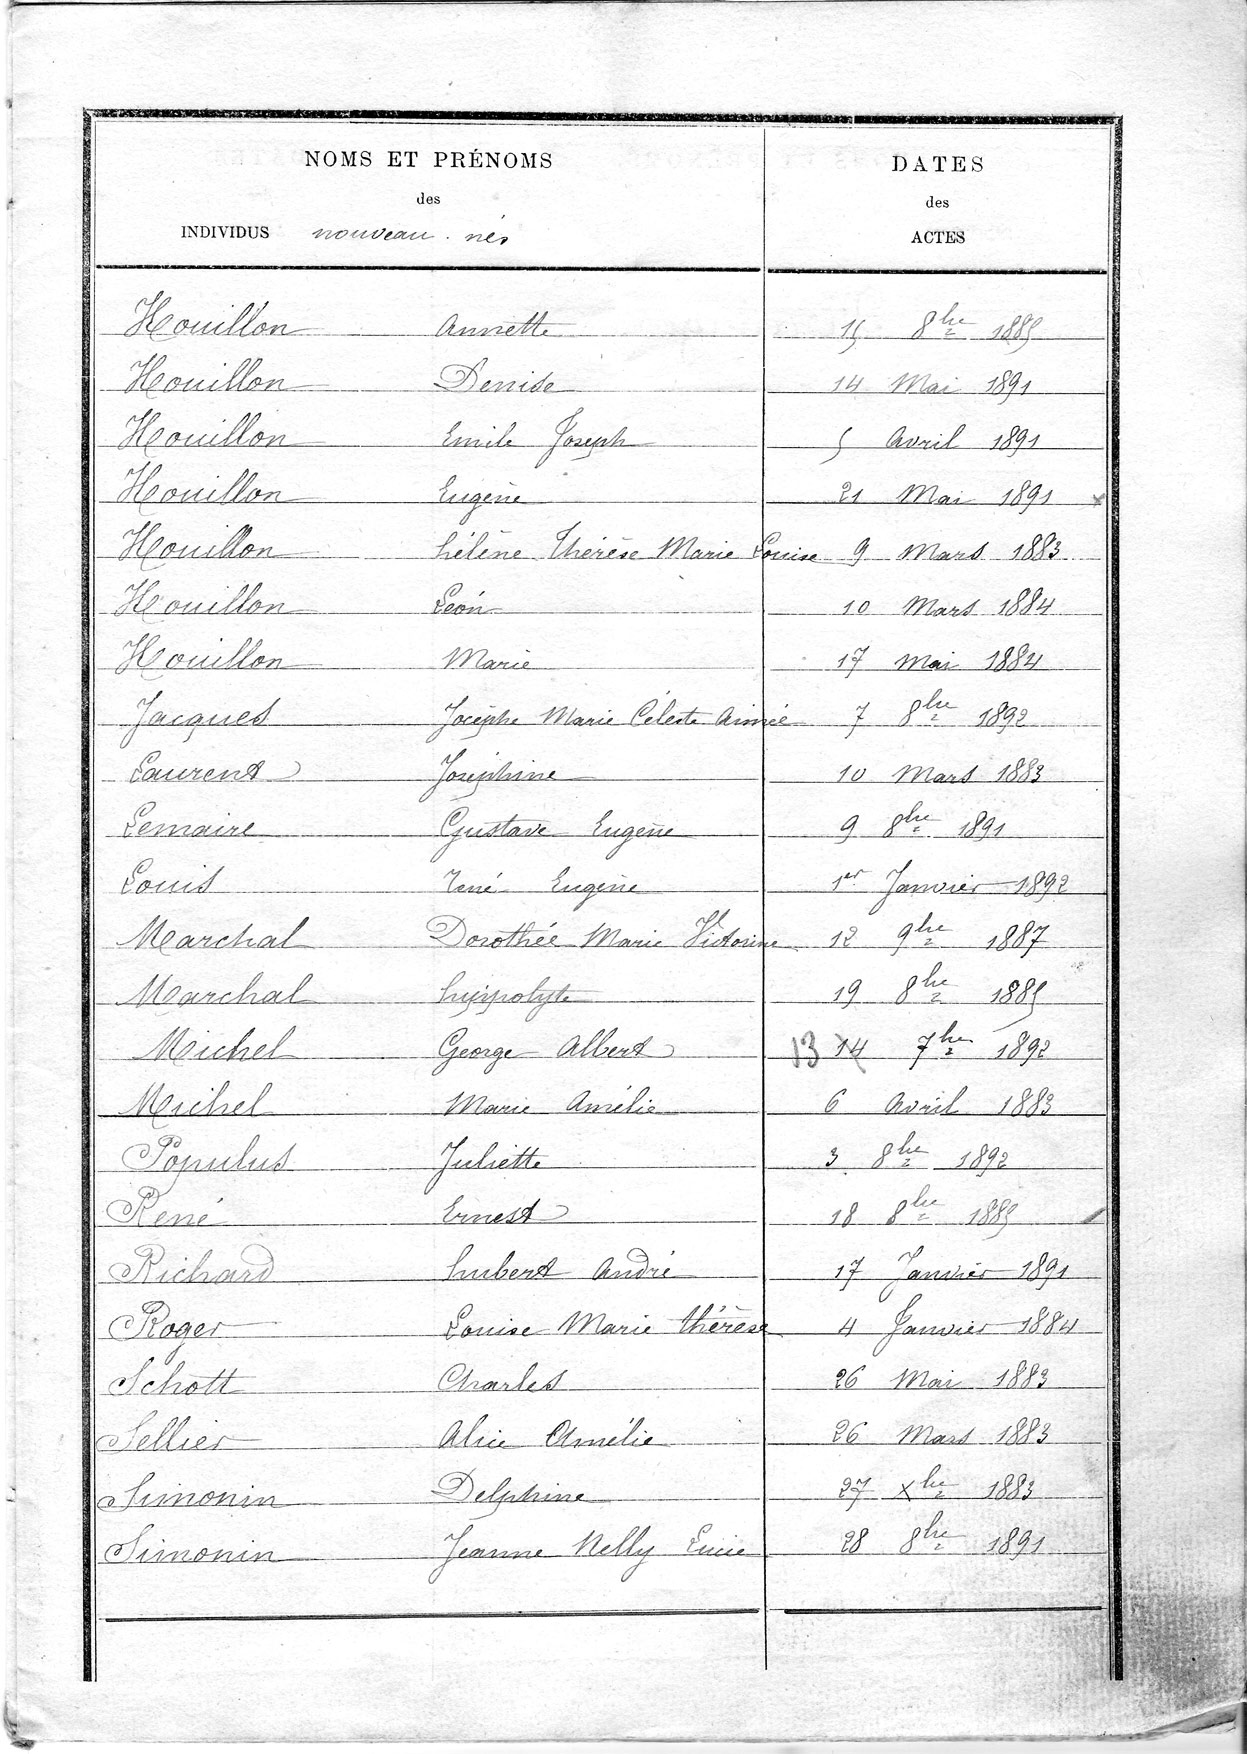 NOMS ET PRÉNOMS
des
INDIVIDUS nouveau-nés
DATES
des
ACTES
Houillon Annette 15 8bre 1885
Houillon Denise 14 Mai 1891
Houillon Emile Joseph 5 Avril 1891
Houillon Eugène 21 Mai 1891 x
Houillon hélène Thérèse Marie Louise 9 Mars 1883
Houillon Léon 10 Mars 1884
Houillon Marie 17 Mai 1884
Jacques Josèphe Marie Céleste Aimée 7 8bre 1892
Laurent Joséphine 10 Mars 1883
Lemaire Gustave Eugène 9 8bre 1891
Louis René Eugène 1er Janvier 1892
Marchal Dorothée Marie Victorine 12 9bre 1887
Marchal hyppolyte 19 8bre 1885
Michel George Albert 13 14 7bre 1892
Michel Marie Amélie 6 Avril 1883
Populus Juliette 3 8bre 1892
René Ernest 18 8bre 1885
Richard hubert André 17 Janvier 1891
Roger Louise Marie thérèse 4 Janvier 1884
Schott Charles 26 Mai 1883
Sellier Alice Amélie 26 Mars 1883
Simonin Delphine 27 Xbre 1883
Simonin Jeanne Nelly Lucie 28 8bre 1891